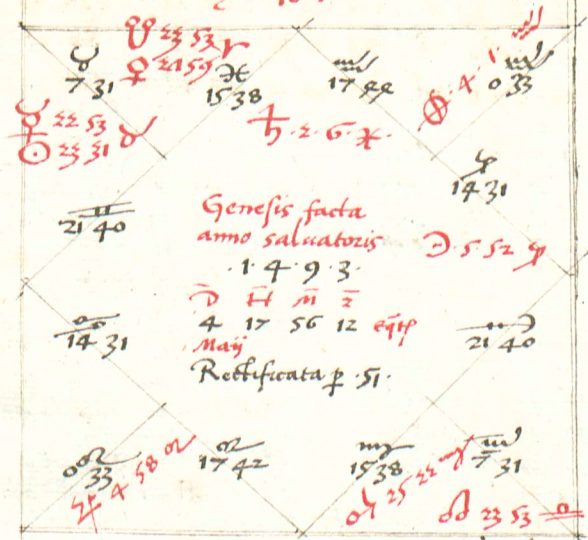 ☋ 23 53 ♈
♀ 21 59
♉
7 31
♓
15 38
♒
17 42
♑
0 33
⊗ 4 1 ♑
☿ 22 53
☉ 23 31 ♉
♄ · 2 · 6 · ♓ ·
♐
14 31
♊
21 40
Genesis facta
anno salvatoris
· 1 · 4 · 9 · 3 ·
☽ · 5 · 52 ♐
D H M 2
4 17 56 12
Maij
Rectificata p · 51 ·
♋
14 31
21 40
♌
0 33
♃ 4 58 ♌
♌
17 42
♍
15 38
♂ 25 22 ♍
7 31
☊ 23 53 ♎